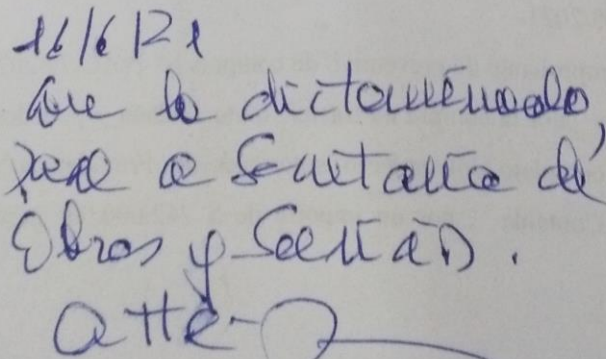 16/6/21
Con lo dictaminado,
pase a Secretaría de
Obros y
Atte